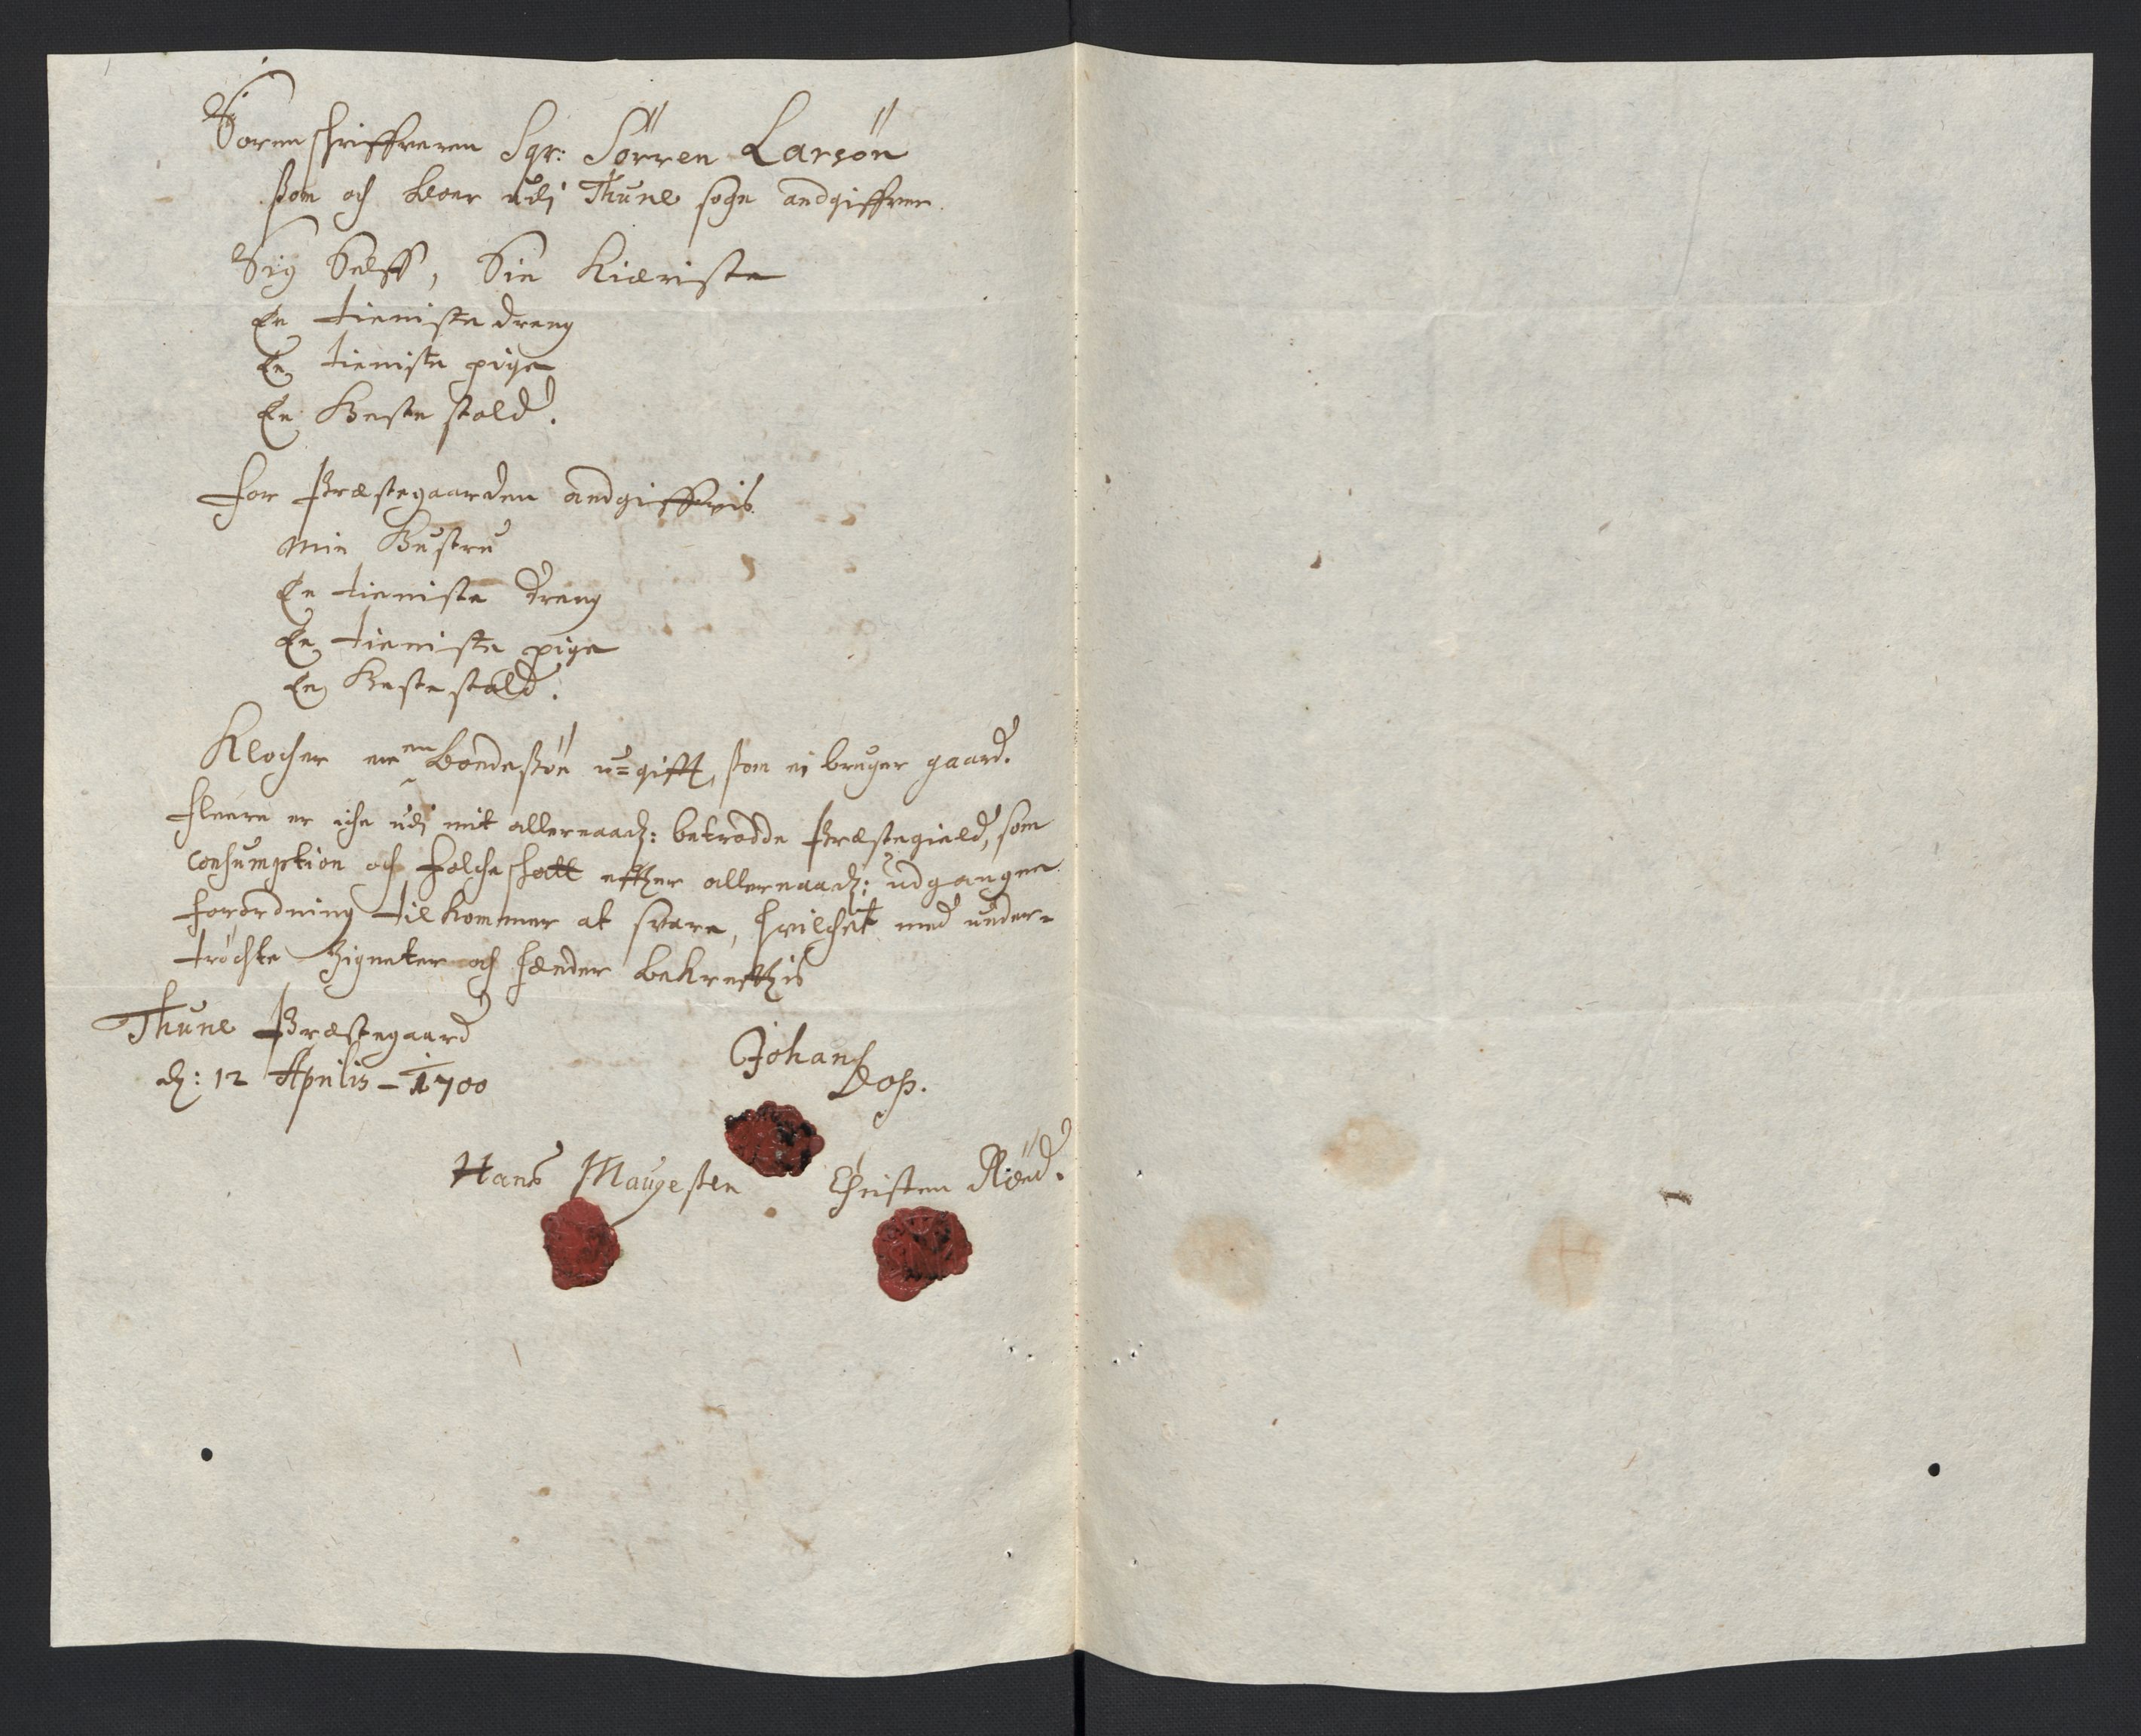 Sorenschriffveren Sgr: Sörren Larsön
ßom och boer udj Thune sogn andgiffver
Sig Selff, Sin Kieriste
En tieniste dreng
En tieniste pige
En Heste stald.
For Præstegaarden andgiffvis
Min Hustru
En tieniste dreng
En tieniste pige
En Hestestald.
Klocher en bondesßön u=gifft, ßom ej bruger gaard.
Fleere er iche udj mit allernaad: betrodde Præstegield, som
Consumption och Folcheskatt effter allernaad: udgangen
forordning tilkommer at svare, hvilchet med under-
tröchte Zigneter och hænder bekrefftis
Thune Præstegaard
d: 12 Aprilis - 1700
Johan
Doß.
Hans Maugesten
Christen Röed.